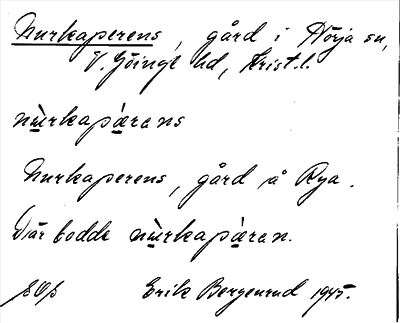 Nurkaperens, gård i Nörja sn,
V. Göinge hd, Krist. l.
nù̲rkapä̲rens
Nurkaperens, gård å Rya.
Där bodde nù̲rkapä̲ran.
Erik Bergenrud 1945.